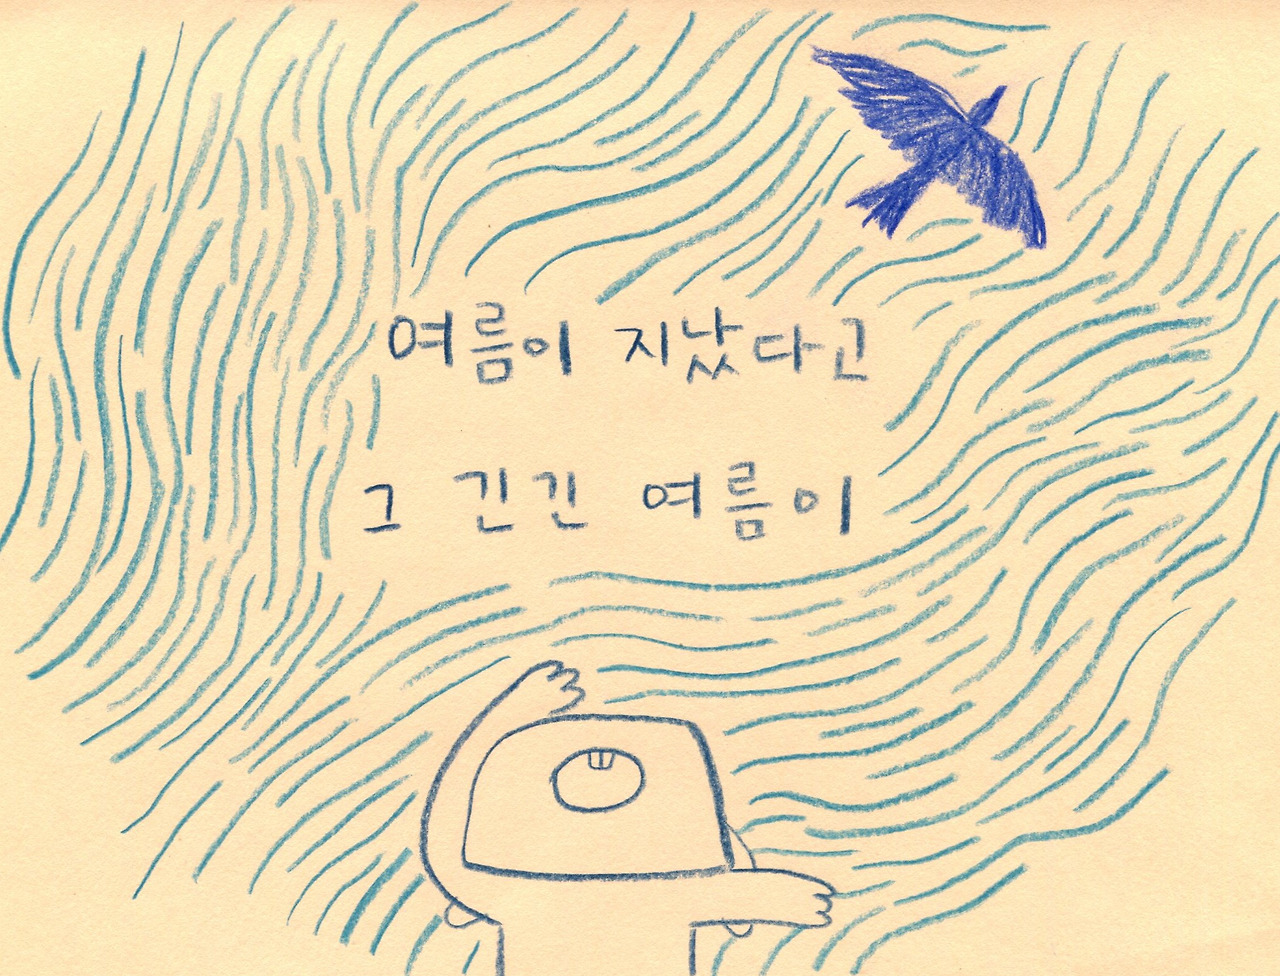 여름이 지났다고
그 긴긴 여름이